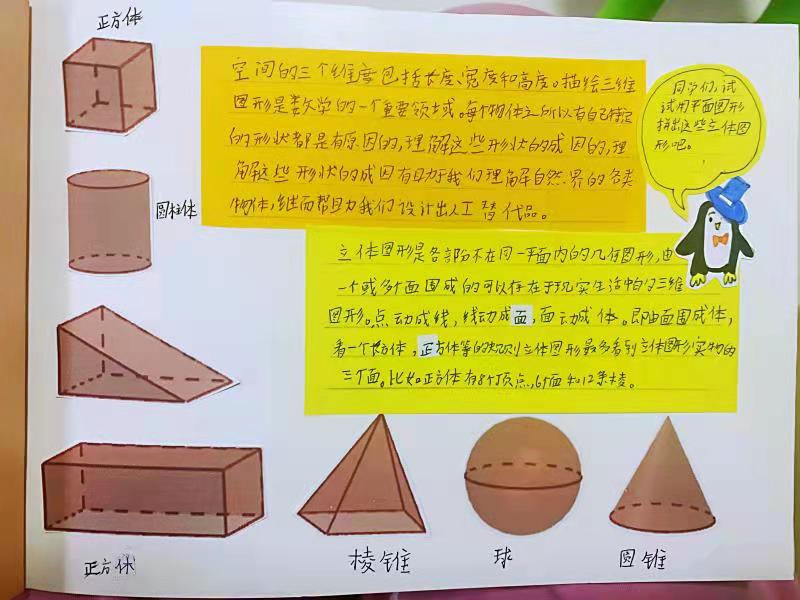 正方体
空间的三个维度包括长度、宽度和高度。描绘三维
图形是数学的一个重要领域。每个物体之所以有自己特定
的形状都是有原因的,理解这些形状的成因的,理
解这些形状的成因有助于我们理解自然界的各类
物体,继而帮助我们设计出人工替代品。
同学们,试
试用平面图形
拼出这些立体图
形吧。
圆柱体
立体图形是各部分不在同一平面内的几何图形,由
一个或多个面围成的可以存在于现实生活中的三维
图形。点动成线,线动成面,面动成体。即由面围成体,
看一个长方体,正方体等的规则立体图形最多看到立体图形实物的
三个面。比如正方体有8个顶点,6个面和12条棱。
正方体
棱锥
球
圆锥